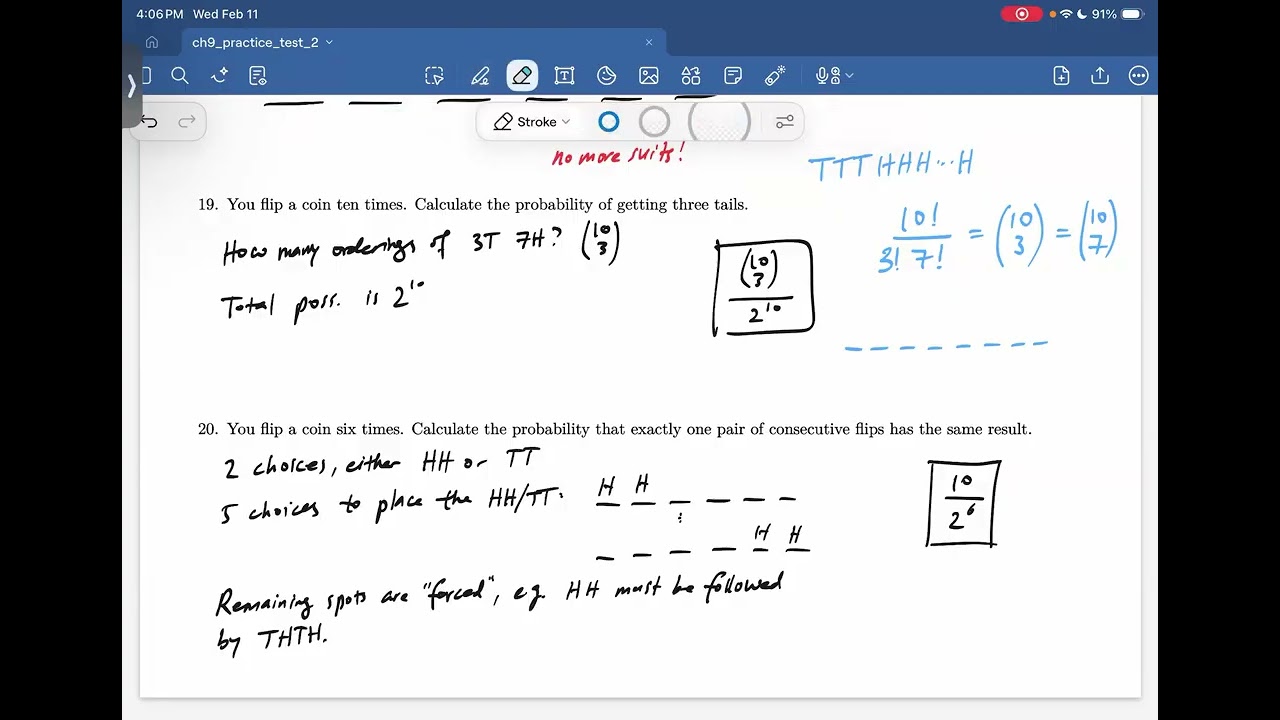 4:06 PM Wed Feb 11
91%
ch9_practice_test_2
Stroke
no more suits!
TTTHHH...H
19. You flip a coin ten times. Calculate the probability of getting three tails.
How many orderings of 3T 7H? (10 3)
10!/3! 7! = (10 3) = (10 7)
(10 3)/2^10
Total poss. is 2^10
20. You flip a coin six times. Calculate the probability that exactly one pair of consecutive flips has the same result.
2 choices, either HH or TT
5 choices to place the HH/TT:
H H _ _ _ _
⋮
_ _ _ _ H H
10/2^6
Remaining spots are "forced", e.g. HH must be followed
by THTH.